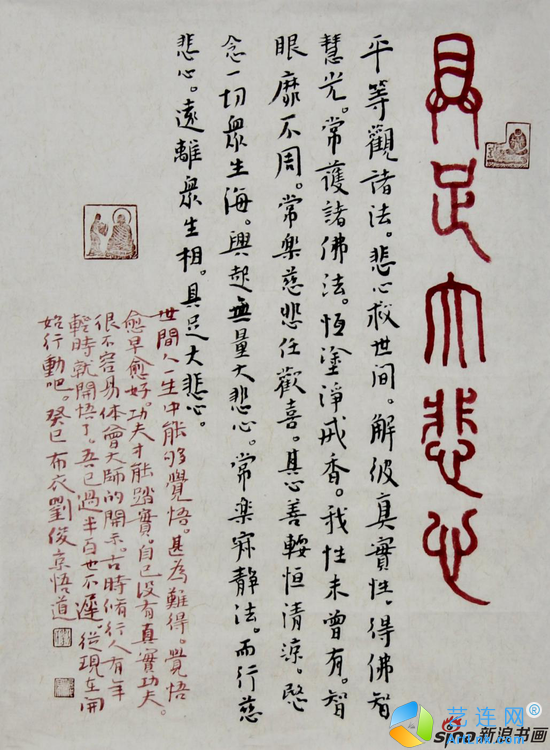 具足大悲心
平等觀諸法。悲心救世间。解彼真實性。得佛智
慧光。常護諸佛法。恆塗淨戒香。我性未曾有。智
眼靡不周。常樂慈悲任歡喜。其心善輭恒清涼。愍
念一切眾生海。興起無量大悲心。常樂寂静法。而行慈
悲心。遠離眾生相。具足大悲心。
世间人一生中能够覺悟。甚為難得。覺悟
愈早愈好。功夫才能踏實。自己没有真實功夫。
很不容易体會大師的開示。古時候修行人有年
輕時就開悟了。吾已過半百也不遲。從現在開
始行動吧。癸巳布衣劉俊京悟道
艺连网®
ArtLnk.com
sina新浪书画